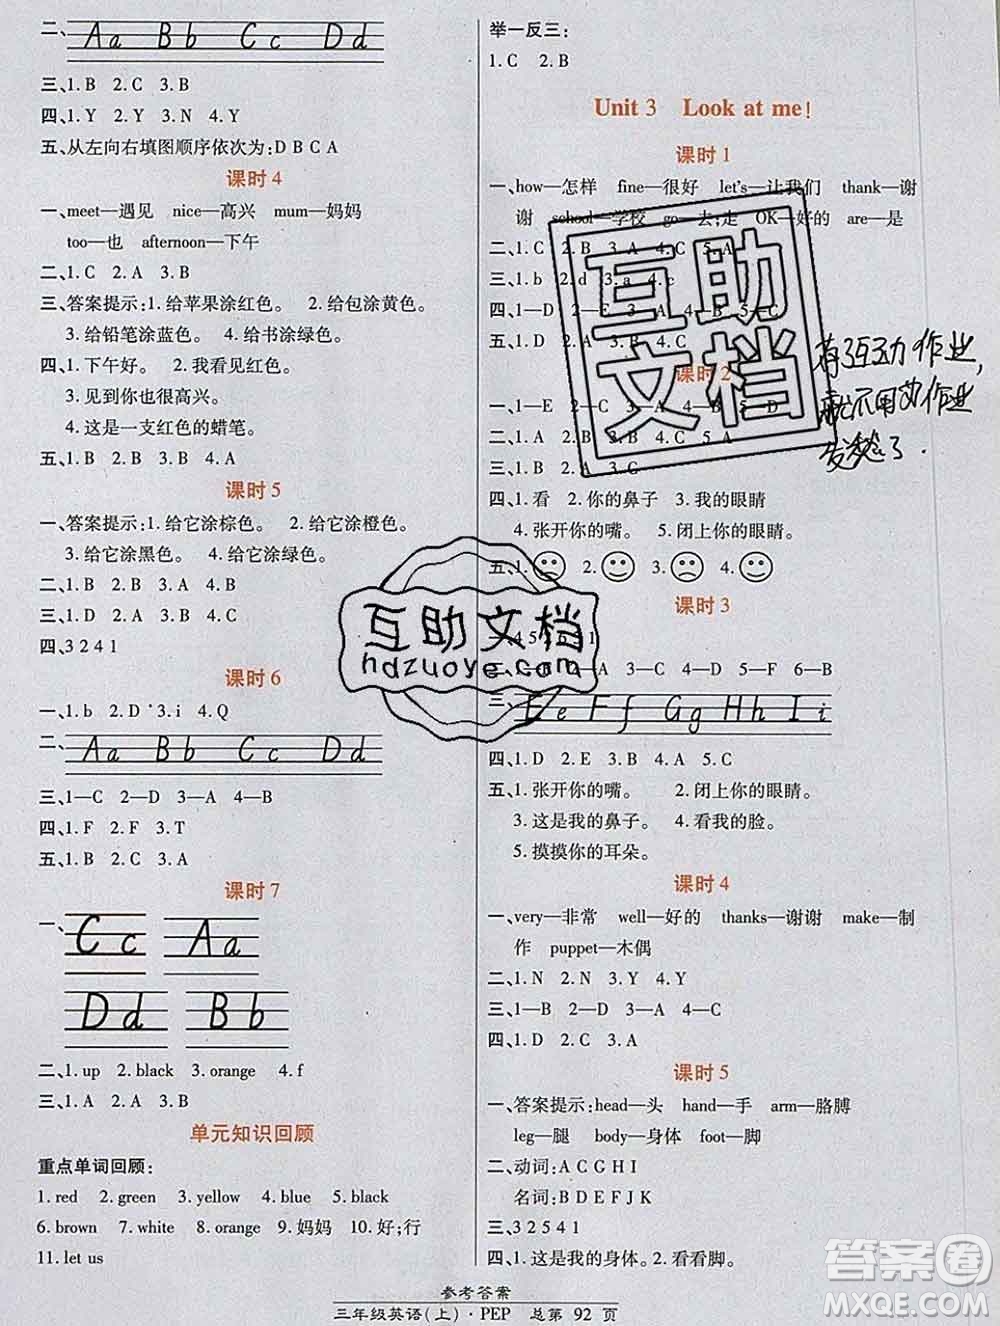 二、Aa Bb Cc Dd
三、1. B 2. C 3. B
四、1. Y 2. Y 3. N 4. Y
五、从左向右填图顺序依次为: D B C A
课时4
一、meet—遇见 nice—高兴 mum—妈妈
too—也 afternoon—下午
二、1. C 2. A 3. B
三、答案提示:1. 给苹果涂红色。 2. 给包涂黄色。
3. 给铅笔涂蓝色。 4. 给书涂绿色。
四、1. 下午好。 2. 我看见红色。
3. 见到你也很高兴。
4. 这是一支红色的蜡笔。
五、1. B 2. B 3. B 4. A
课时5
一、答案提示:1. 给它涂棕色。 2. 给它涂橙色。
3. 给它涂黑色。 4. 给它涂绿色。
二、1. B 2. B 3. A 4. B
三、1. B 2. A 3. B 4. C
四、3 2 4 1
课时6
一、1. b 2. D 3. i 4. Q
二、Aa Bb Cc Dd
三、1—C 2—D 3—A 4—B
四、1. F 2. F 3. T
五、1. B 2. C 3. A
课时7
一、Cc Aa
Dd Bb
二、1. up 2. black 3. orange 4. f
三、1. A 2. A 3. B
单元知识回顾
重点单词回顾:
1. red 2. green 3. yellow 4. blue 5. black
6. brown 7. white 8. orange 9. 妈妈 10. 好;行
11. let us
举一反三:
1. C 2. B
Unit 3 Look at me!
课时1
一、how—怎样 fine—很好 let's—让我们 thank—谢
谢 school—学校 go—去;走 OK—好的 are—是
二、1. C 2. B 3. A 4. C 5. A
三、1. b 2. d 3. a 4. c
四、1—D 2—A 3—B
五、1. D 2. A
课时2
一、1—E 2—C
二、1. A 2. B
三、1. B 2. A 3. C
四、1. 看 2. 你的鼻子 3. 我的眼睛
4. 张开你的嘴。 5. 闭上你的眼睛。
五、1. 2. 3. 4.
课时3
三、1—C 2—E 3—A 4—D 5—F 6—B
三、Ee Ff Gg Hh Ii
四、1. D 2. E 3. B 4. A 5. C
五、1. 张开你的嘴。 2. 闭上你的眼睛。
3. 这是我的鼻子。 4. 看我的脸。
5. 摸摸你的耳朵。
课时4
一、very—非常 well—好的 thanks—谢谢 make—制
作 puppet—木偶
二、1. N 2. N 3. Y 4. Y
三、1—B 2—D 3—A 4—C
四、1. D 2. C 3. B 4. A
课时5
一、答案提示:head—头 hand—手 arm—胳膊
leg—腿 body—身体 foot—脚
二、动词:A C G H I
名词:B D E F J K
三、3 2 5 4 1
四、1. 这是我的身体。2. 看看脚。
参考答案
三年级英语(上)·PEP 总第 92 页
互助文档
互助文档
hdzuoye.com
有了互动作业,
就不用为作业
发愁了.
答案圈
MXQE.COM